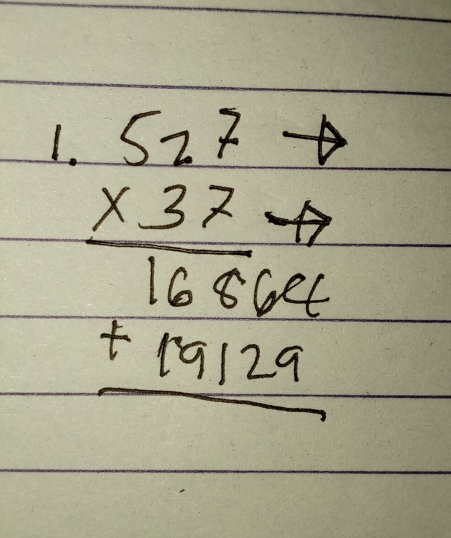 1. 527 →
× 37 →
16864
+ 19129